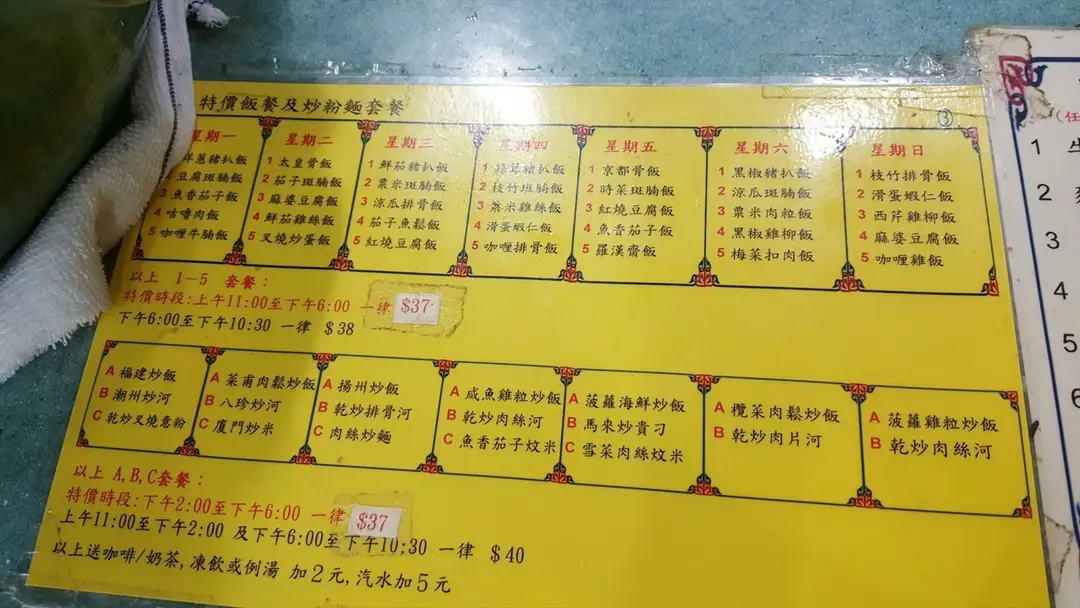 特價飯餐及炒粉麵套餐
③
星期一
鮮蔥豬扒飯
豆腐斑腩飯
3 魚香茄子飯
4 咕嚕肉飯
5 咖喱牛腩飯
星期二
1 太皇骨飯
2 茄子斑腩飯
3 麻婆豆腐飯
4 鮮茄雞絲飯
5 叉燒炒蛋飯
星期三
1 鮮茄豬扒飯
2 粟米斑腩飯
3 涼瓜排骨飯
4 茄子魚鬆飯
5 紅燒豆腐飯
星期四
1 蒜茸豬扒飯
2 枝竹班腩飯
3 粟米雞絲飯
4 滑蛋蝦仁飯
5 咖喱排骨飯
星期五
1 京都骨飯
2 時菜斑腩飯
3 紅燒豆腐飯
4 魚香茄子飯
5 羅漢齋飯
星期六
1 黑椒豬扒飯
2 涼瓜斑腩飯
3 粟米肉粒飯
4 黑椒雞柳飯
5 梅菜扣肉飯
星期日
1 枝竹排骨飯
2 滑蛋蝦仁飯
3 西芹雞柳飯
4 麻婆豆腐飯
5 咖喱雞飯
以上 1-5 套餐：
特價時段:上午11:00至下午6:00 一律 $37
下午6:00至下午10:30 一律 $38
A 福建炒飯
B 潮州炒河
C 乾炒叉燒意粉
A 菜甫肉鬆炒飯
B 八珍炒河
C 廈門炒米
A 揚州炒飯
B 乾炒排骨河
C 肉絲炒麵
A 咸魚雞粒炒飯
B 乾炒肉絲河
C 魚香茄子炆米
A 菠蘿海鮮炒飯
B 馬來炒貴刁
C 雪菜肉絲炆米
A 欖菜肉鬆炒飯
B 乾炒肉片河
A 菠蘿雞粒炒飯
B 乾炒肉絲河
以上 A,B,C套餐：
特價時段:下午2:00至下午6:00 一律 $37
上午11:00至下午2:00 及下午6:00至下午10:30 一律 $40
以上送咖啡/奶茶,凍飲或例湯 加2元,汽水加5元
(任
1
2
3
4
5
6